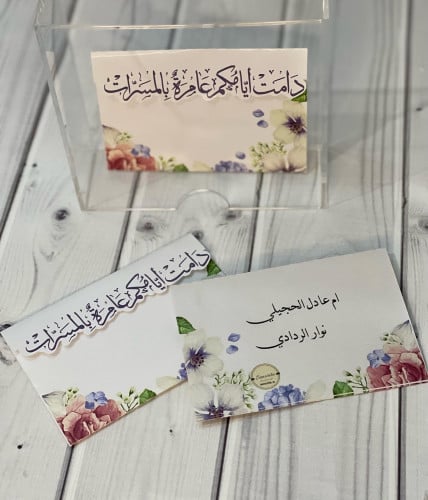 دَامَت أيّامُكم عَامِرةٌ بِالمسَرّات
دَامَت أيّامُكم عَامِرةٌ بِالمسَرّات
ام عادل الحجيلي
نوار الردادي